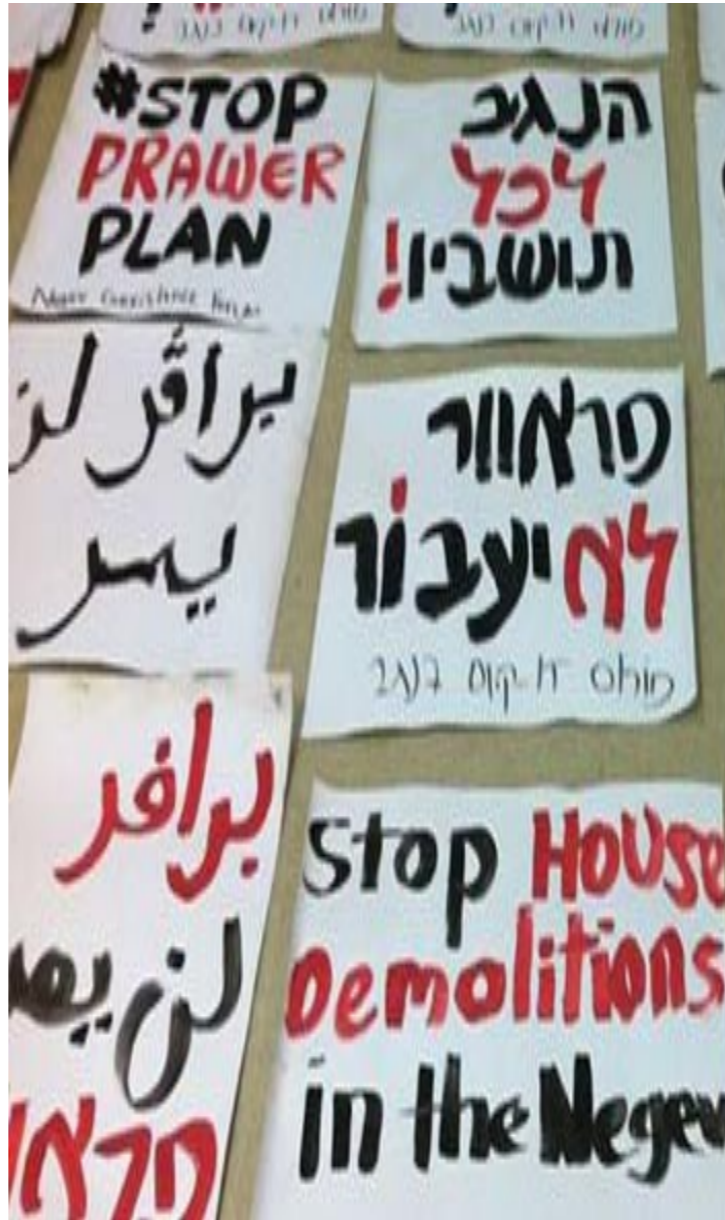 #STOP
PRAWER
PLAN
Negev Coexistence Forum
הנגב
לכל
תושביו!
براڤر لن
يمر
פראוור
לא יעבור
פורום דו קיום בנגב
برافر
لن يمر
Stop House
Demolitions
in the Negev